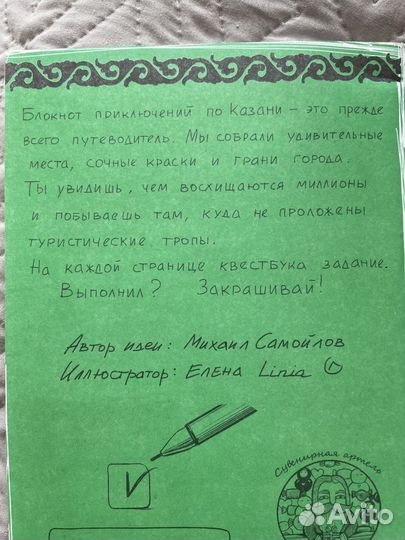 Блокнот приключений по Казани – это прежде
всего путеводитель. Мы собрали удивительные
места, сочные краски и грани города.
Ты увидишь, чем восхищаются миллионы
и побываешь там, куда не проложены
туристические тропы.
На каждой странице квестбука задание.
Выполнил? Закрашивай!
Автор идеи: Михаил Самойлов
Иллюстратор: Елена Linia
Сувенирная артель
Avito